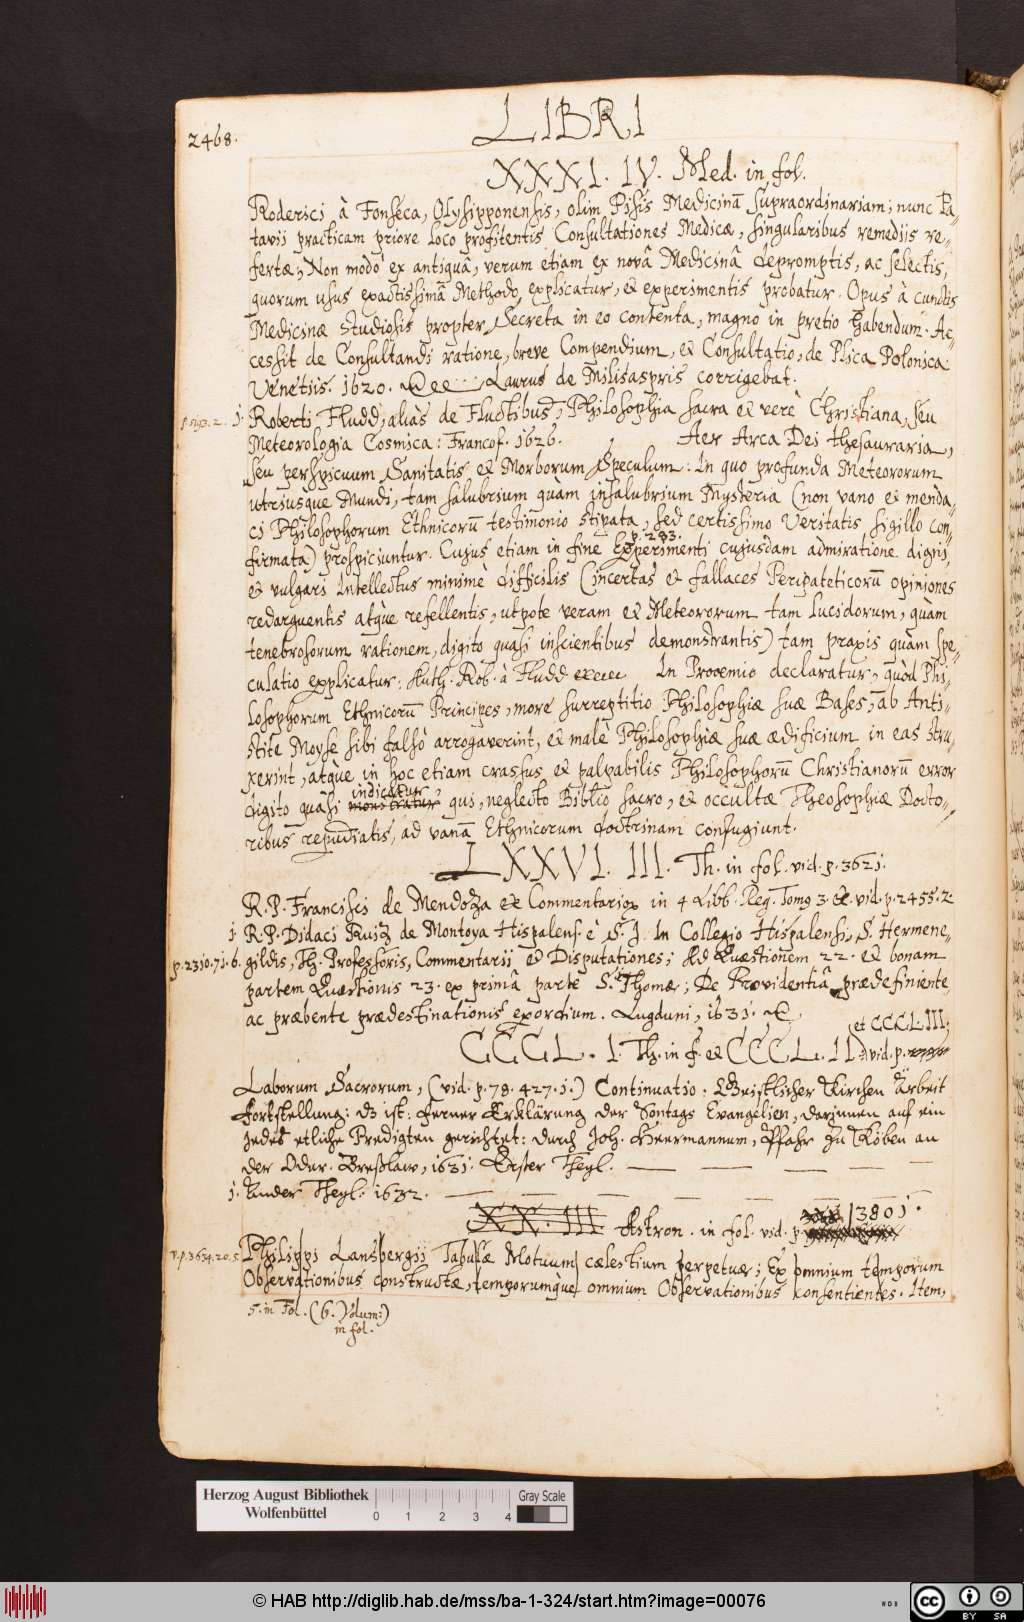 2468.
LIBRI
XXXI. IV. Med. in fol.
Roderici à Fonseca, Olysipponensis, olim Pisis Medicinā supraordinariam; nunc Pa-
tavii practicam priore loco profitentis Consultationes Medicæ, singularibus remediis re-
fertæ; Non modò ex antiquâ, verum etiam ex novâ Medicinâ depromptis, ac selectis,
quorum usus exactissimâ Methodo explicatur, et experimentis probatur. Opus à cunctis
Medicinæ studiosis propter Secreta in eo contenta, magno in pretio habendum. Ac-
cessit de Consultandi ratione, breve Compendium, et Consultatio, de Plica Polonica.
Venetiis. 1620. Laurus de Milisaspris corrigebat.
1. Roberti Fludd, aliàs de Fluctibus, Philosophia sacra et verè Christiana, seu
Meteorologia Cosmica: Francof. 1626. Aer Arca Dei thesauraria,
seu perspicuum Sanitatis et Morborum Speculum: In quo profunda Meteororum
utriusque Mundi, tam salubrium quàm insalubrium Mysteria (non vano et menda-
ci Philosophorum Ethnicorū testimonio stipata, sed certissimo Veritatis sigillo con-
firmata) prospiciuntur. Cujus etiam in fine p. 283. Experimenti cujusdam admiratione digni,
et vulgari Intellectus minimè difficilis (incertas et fallaces Peripateticorū opiniones
redarguentis atque refellentis, utpote veram et Meteororum tam lucidorum, quàm
tenebrosorum rationem, digito quasi inscientibus demonstrantis) tam praxis quàm spe-
culatio explicatur: Auth. Rob. à Fludd In Prooemio declaratur, quòd Phi-
losophorum Ethnicorū Principes, more surreptitio Philosophiæ suæ Bases, ab Anti-
stite Moyse sibi falsò arrogaverint, et malè Philosophiæ suæ ædificium in eas stru-
xerint, atque in hoc etiam crassus et palpabilis Philosophorū Christianorū error
digito quasi monstratur indicatur, qui, neglecto Biblio sacro, et occultæ Theosophiæ Docto-
ribus repudiatis, ad vanā Ethnicorum doctrinam confugiunt.
LXXVI. III. Th. in fol. vid. p. 3621.
R. P. Francisci de Mendoza Commentarior in 4 Libb. Reg. Tomg 3. vid. p. 2455. 2
1. R. P. Didaci Ruiz de Montoya Hispalens. è S. J. In Collegio Hispalensi, S. Hermene-
p. 2310. 71. 6. gildis, Th. Professoris, Commentarii et Disputationes; Ad Quæstionem 22. et bonam
partem Quæstionis 23. ex primâ parte S. Thomæ; De Providentiâ prædefiniente,
ac præbente prædestinationis exordium. Lugduni, 1631.
CCCL. I. Th. in f. et CCCL. II. et CCCL III. vid. p.
Laborum Sacrorum, (vid. p. 78. 427. 1.) Continuatio. Geistlicher Kirchen Arbeit
Fortstellung: dz ist: Ferner Erklärung der Sontags Evangelien, darinnen auf ein
jedes etliche Predigten gerichtet: durch Joh. Heermannum, Pfahr zu Köben an
der Oder. Breßlaw, 1631. Erster Theyl.
1. Ander Theyl. 1632.
XX. III. Astron. in fol. vid. p. 3801.
v. p. 3654. 20. 5. Philippi Lansbergii Tabulæ Motuum cælestium perpetuæ; Ex omnium temporum
Observationibus constructæ, temporumque omnium Observationibus consentientes. Item,
5. in Fol. (6. Volum:)
in fol.
Herzog August Bibliothek
Wolfenbüttel
0 1 2 3 4
Gray Scale
© HAB http://diglib.hab.de/mss/ba-1-324/start.htm?image=00076
cc BY SA